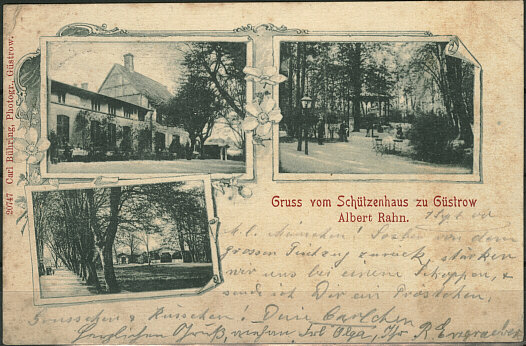 20747 Carl Bühring, Photogr. Güstrow.
Gruss vom Schützenhaus zu Güstrow
Albert Rahn.
M. l. Männchen! Soeben von dem
grossen zurück, stärken
wir uns bei einem Schoppen, &
sende ich Dir ein Pröstchen,
Grüsschen & Küsschen! Dein
Herzlichen Gruß, Frl Olga, Ihr R.